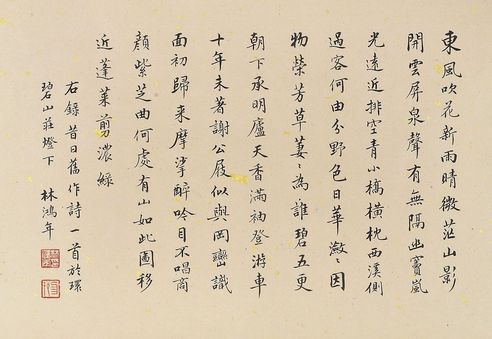 東風吹花新雨晴微茫山影
開雲屏泉聲有無隔幽竇嵐
光遠近排空青小橋橫枕西溪側
過客何由分野色日華瀲〻因
物榮芳草萋〻為誰碧五更
朝下承明廬天香滿袖登游車
十年未著謝公屐似與岡巒識
面初歸來摩挲醉吟目不唱商
顏紫芝曲何處有山如此圖移
近蓬萊剪濃綠
右錄昔日舊作詩一首於環
碧山莊燈下 林鴻年